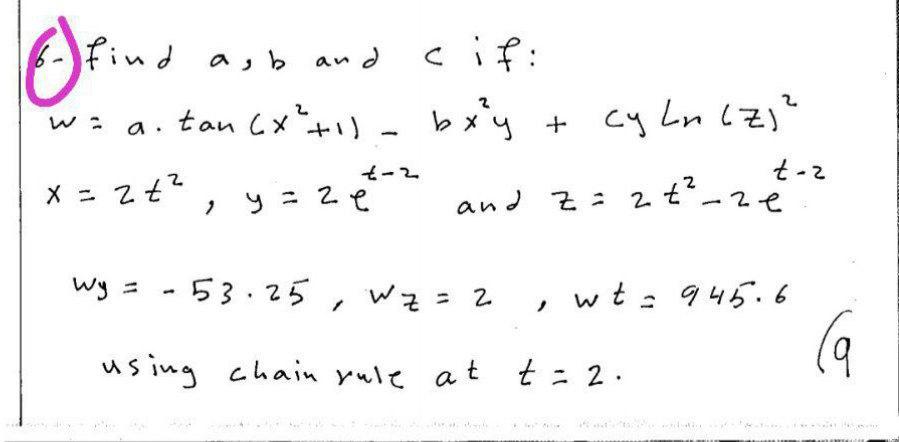 6- find a, b and c if:
w = a. tan (x²+1) - bx²y + cy Ln (z)²
x = 2t², y = 2e^{t-2} and z = 2t² - 2e^{t-2}.
wy = -53.25, wz = 2, wt = 945.6
using chain rule at t = 2.
(9